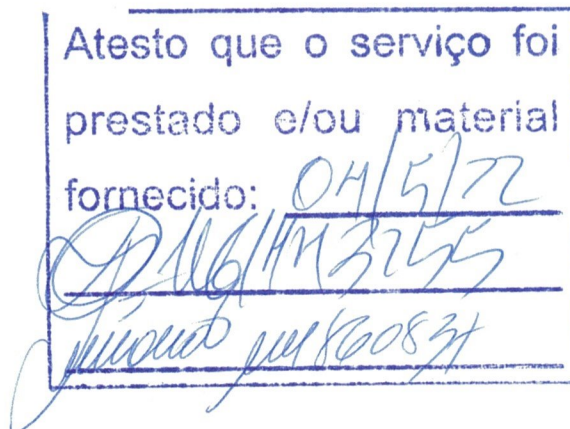 Atesto que o serviço foi
prestado e/ou material
fornecido: 04/5/22
860837